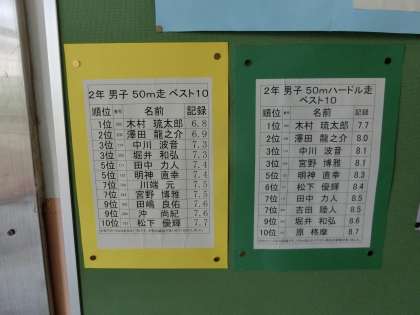 2年 男子 50m走 ベスト10
順位 番号 名前 記録
1位 木村 琉太郎 6.8
2位 澤田 龍之介 6.9
3位 中川 波音 7.3
3位 堀井 和弘 7.3
5位 田中 力人 7.4
5位 明神 直幸 7.4
7位 川端 元 7.5
7位 宮野 博雅 7.5
9位 田嶋 良佑 7.6
9位 沖 尚紀 7.6
10位 松下 優輝 7.7
2年 男子 50mハードル走
ベスト10
順位 番号 名前 記録
1位 木村 琉太郎 7.7
2位 澤田 龍之介 8.0
3位 中川 波音 8.1
3位 宮野 博雅 8.1
5位 明神 直幸 8.3
6位 松下 優輝 8.4
7位 田中 力人 8.5
7位 吉田 陸人 8.5
9位 堀井 和弘 8.6
10位 原 柊摩 8.7